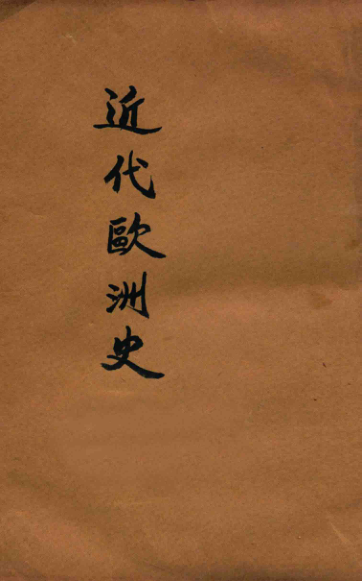 近代歐洲史